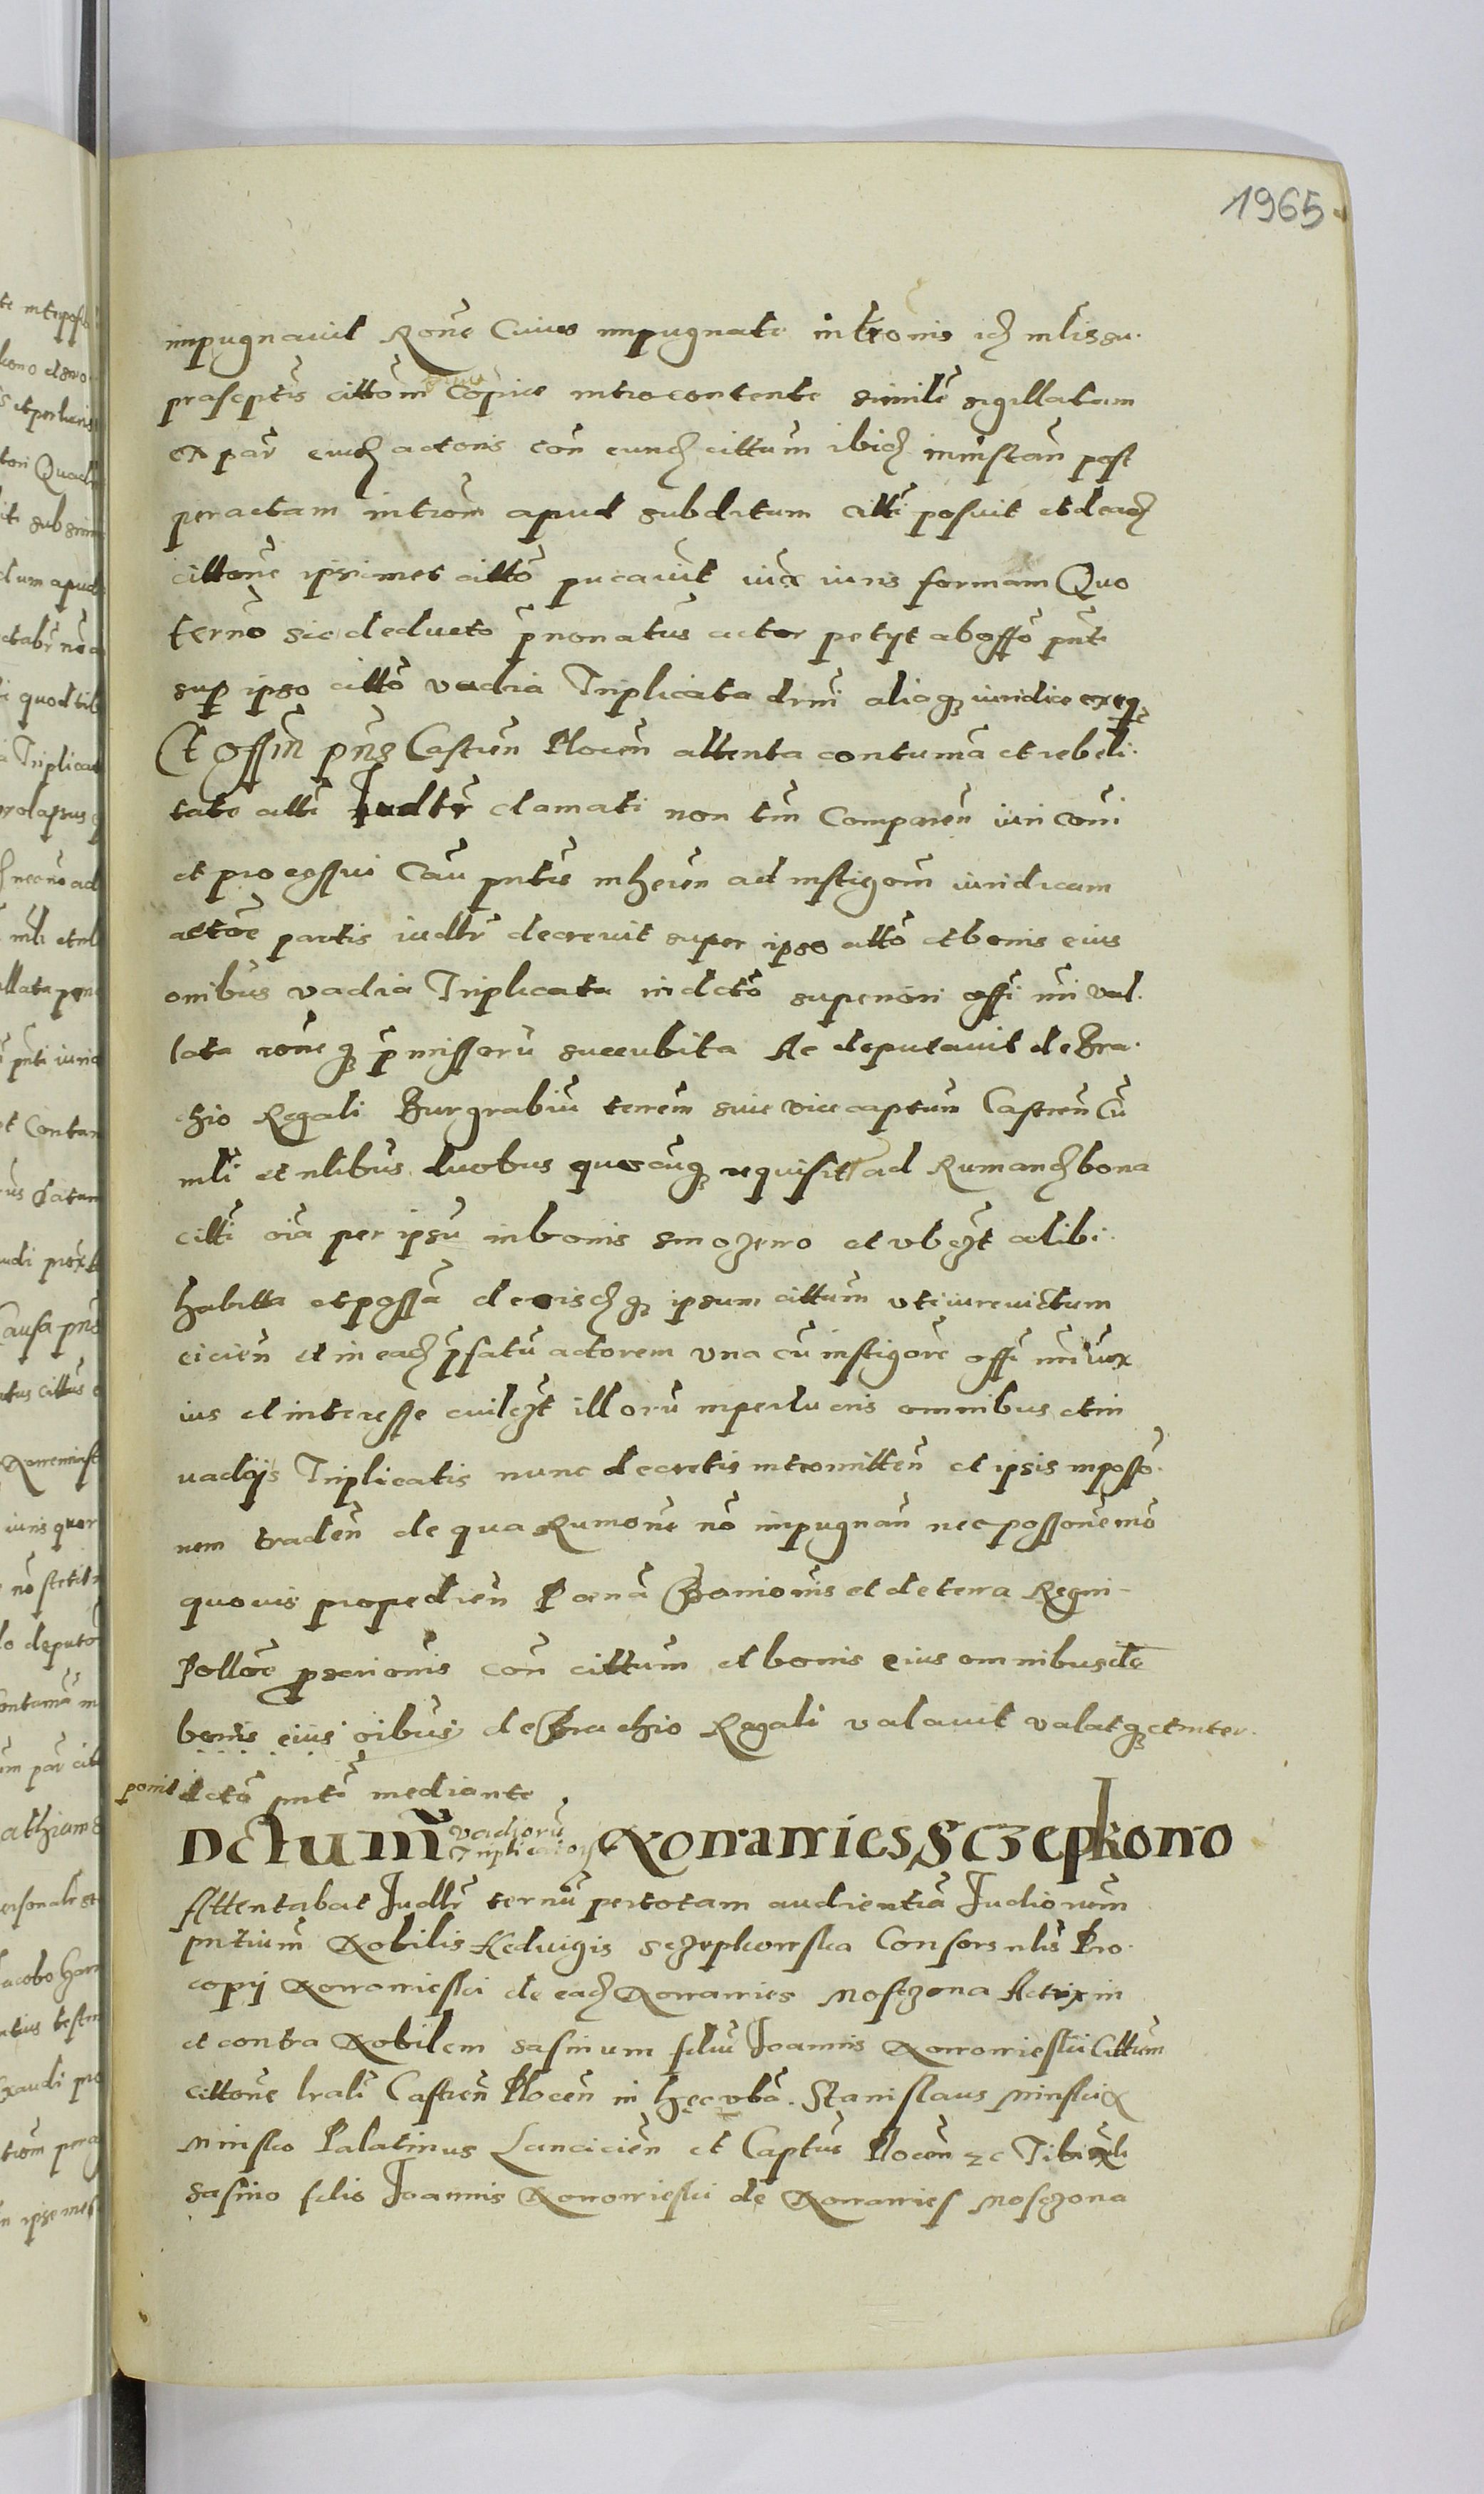 1965
impugnavit Rone Cuius impugnate intromis id mlis su.
prasceptis cittom Copiae introcontente simile sigillatum
ex par eiusd actoris con eund cittum ibid ministan post
peractam introm apud subditum citti posuit et de ead
cittone ipsimet citto pucavit iux iuris formam Quo
termo sic deducto pnonatus actor petyt ab offo pnte
sup ipso citto vadia Triplicata drni aliaq iuridice exeq
Et offm pns Castren Plocen attenta contuma et rebeli.
tate citti Iudtr clamati non tm Comparen iuri comi
et processui Cau pntis inheren ad instigom iuridicam
actore partis iudtr decrevit super ipso citto et bonis eius
onibus vadia Triplicata in dcto superiori offi mi val.
lata roneq pmissoru succubita Ac deputavit de Bra.
chio Regali Burgrabiu terrem sive vicecaptum Castren Cu
mli et nlibus duobus quoscuq requisit ad Rumand bona
citti oia per ipsu in bonis smozewo et ubqt alibi.
habita et possa de eisdq ipsum cittum uti iurevictum
eicien et in ead psatu actorem una cu instigore offi mi iux
ius et interesse cuilqt illoru in perlucris omnibus et in
vadijs Triplicatis nunc decretis intromitten et ipsis in posso.
nem traden de qua Rumone no impugnan nec possone mo
quovis propedien Poena Banionis et de terra Regni
Polloe proscrionis con cittum et bonis eius omnibus de
bonis eius oibus de Brachio Regali valavit valatq et inter.
ponit dcto pnte mediante
Dctum vadioru Triplicator Nowawies Sczepkowo
Attentabat Iudtr termu per totam audientia Iudiorum
pntium Nobilis Hedvigis Sczepkowska Consors nlis Pro.
copij Nowowieski de ead Nowawies Mosczona Actrix in
et contra Nobilem Sasinum filiu Ioannis Nowowieski Cittum
cittone lrali Castren Plocen in hec vba. Stanislaus Minski d
Minsko Palatinus Lancicien et Captus Plocen zc Tibi nli
Sasino filio Ioannis Nowowieski de Nowawies Mosczona